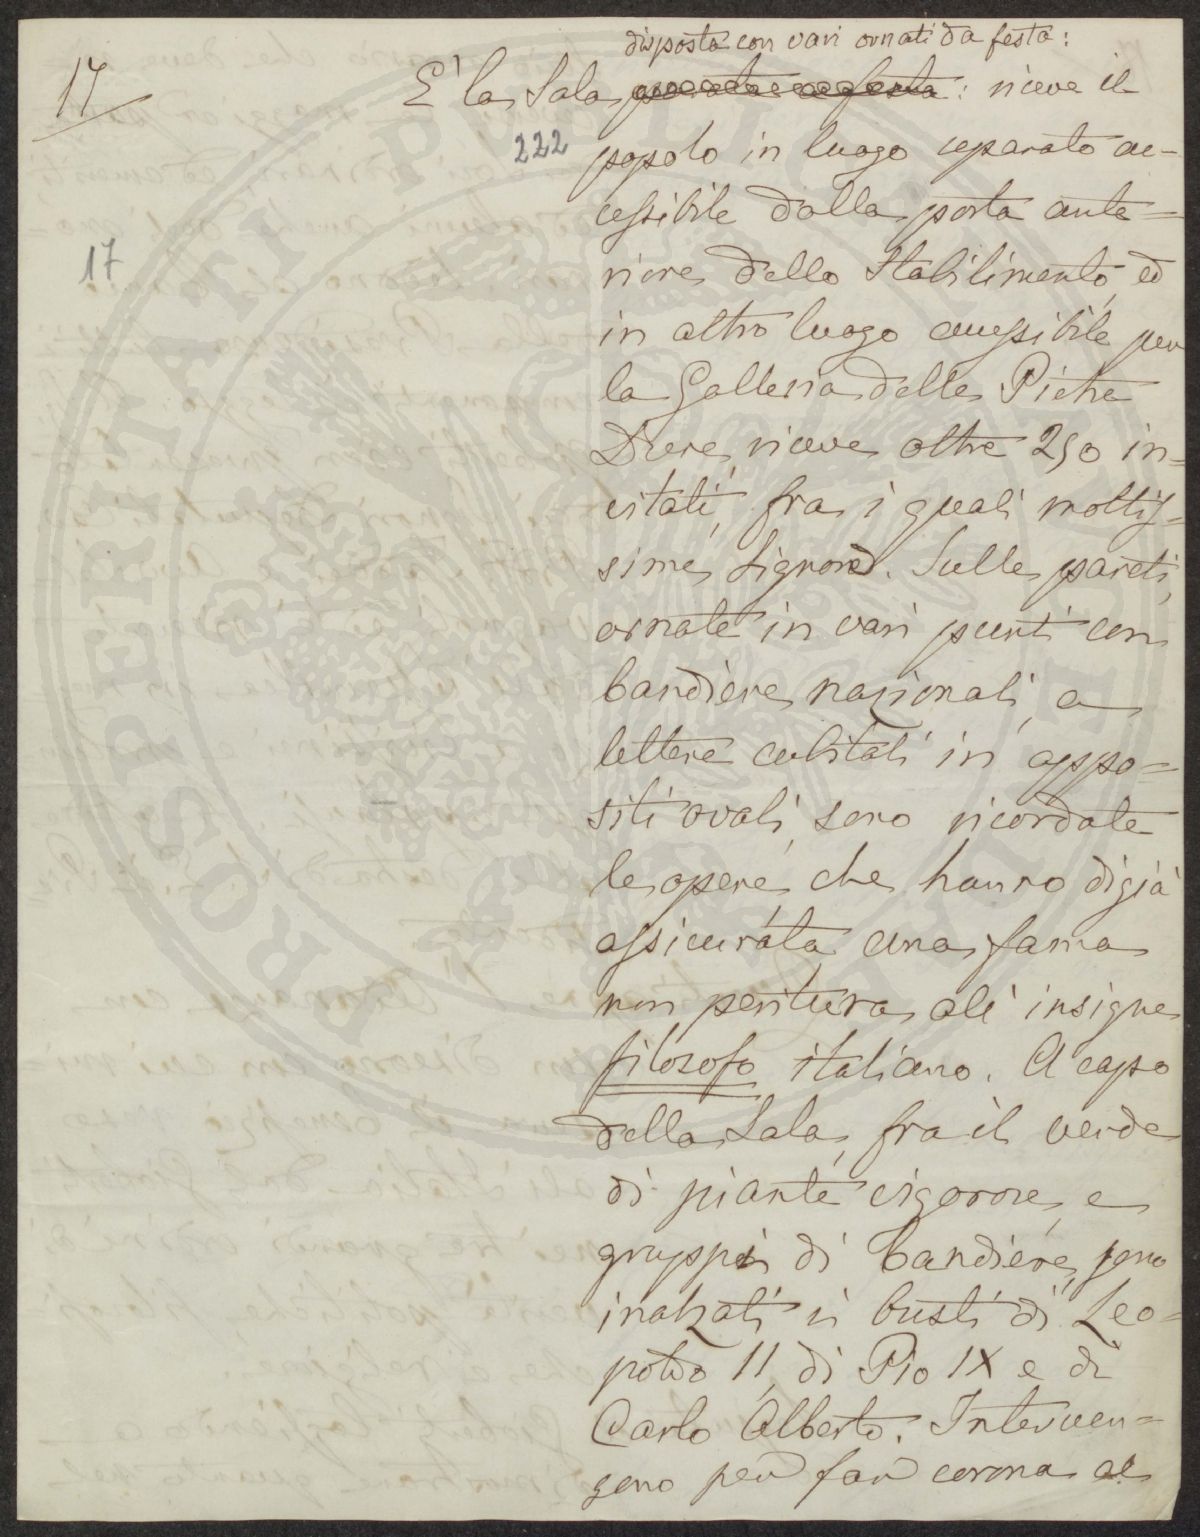 17
disposta con vari ornati da festa:
E' la Sala parata a festa: riceve il
222
popolo in luogo separato ac-
cessibile dalla porta ante=
riore dello Stabilimento, ed
17
in altro luogo accessibile per
la Galleria delle Pietre
Dure, riceve oltre 250 in=
vitati, fra i quali moltis-
sime Signore. Sulle pareti,
ornate in vari punti con
bandiere nazionali, a
lettere cubitali in appo=
siti ovali, sono ricordate
le opere, che hanno digià
assicurata una fama
non peritura all' insigne
filosofo italiano. A capo
della Sala, fra il verde
di piante vigorose, e
gruppi di bandiere, sono
inalzati i busti di Leo=
poldo II, di Pio IX e di
Carlo Alberto. Interven=
gono per far corona al
PROSPERITATI PUBLICAE